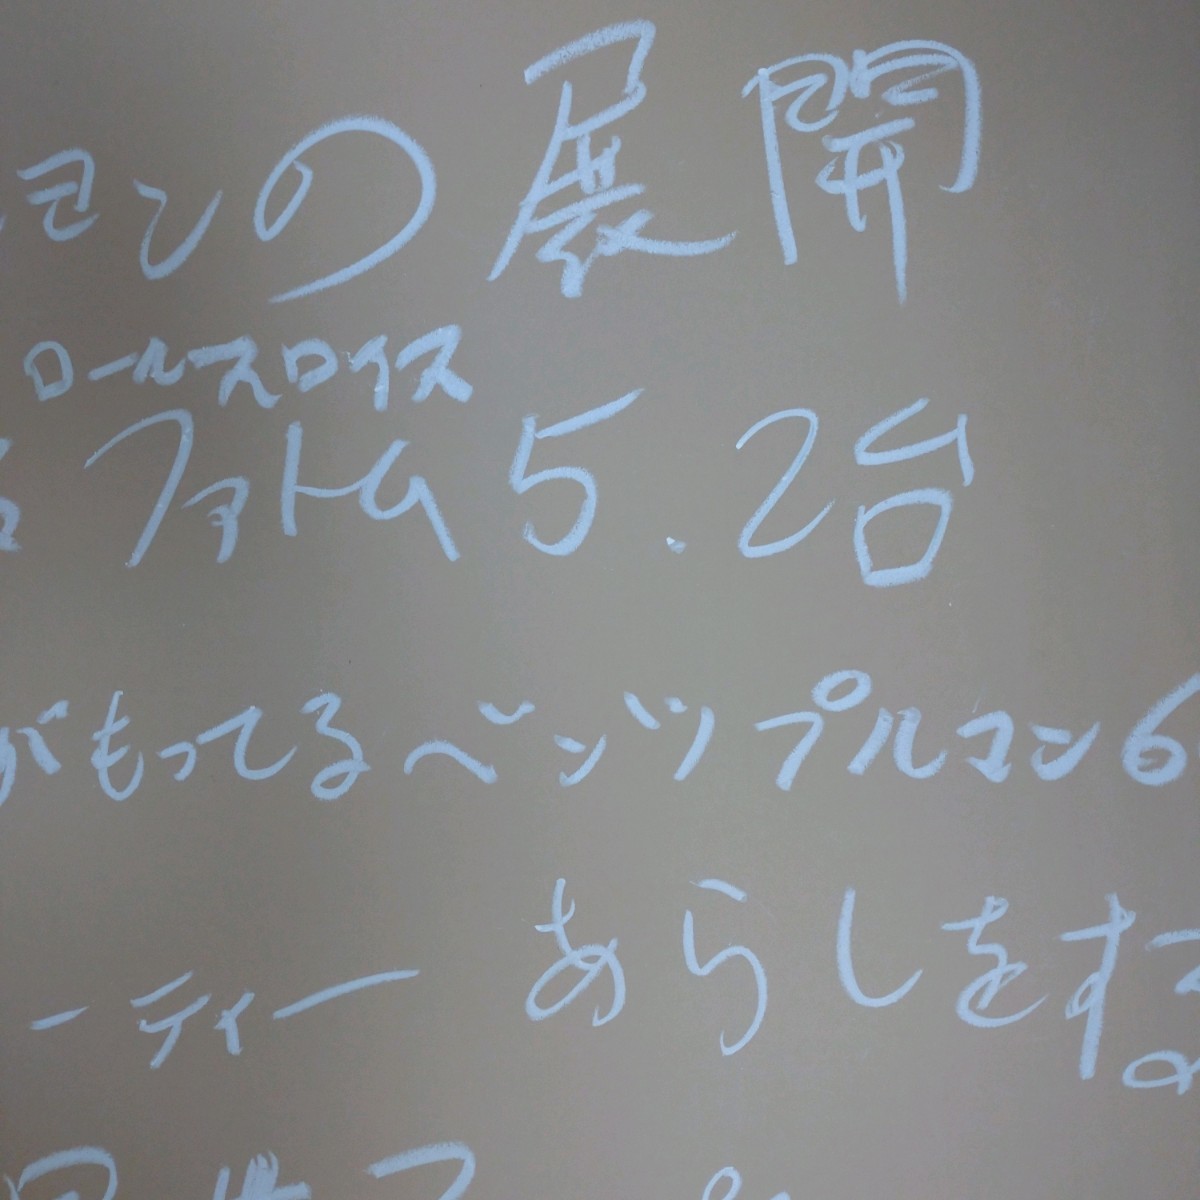 ョンの展開
ロールスロイス
ファトム5.2台
がもってるベンツプルマン6
ーティー あらしをする